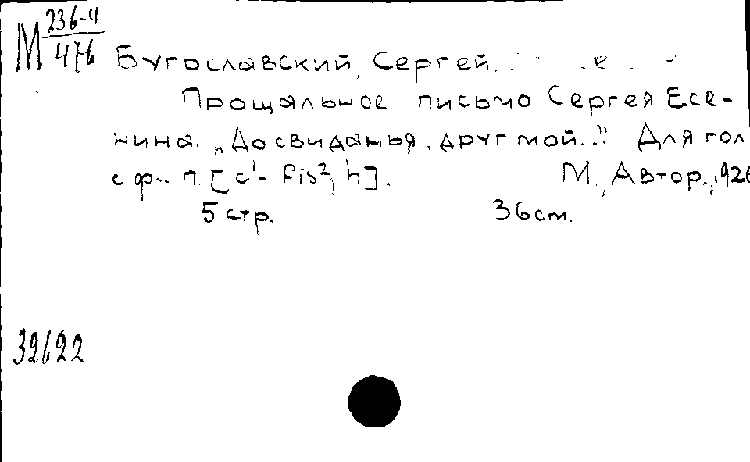 М 236-4
476
Бугославский, Сергей.
Прощальное письмо Сергея Есе-
нина. „До свиданья, друг мой..." Для гол
с ф-п. [c¹- fis², h]. М., Автор, 926
5 стр. 36 см.
32622